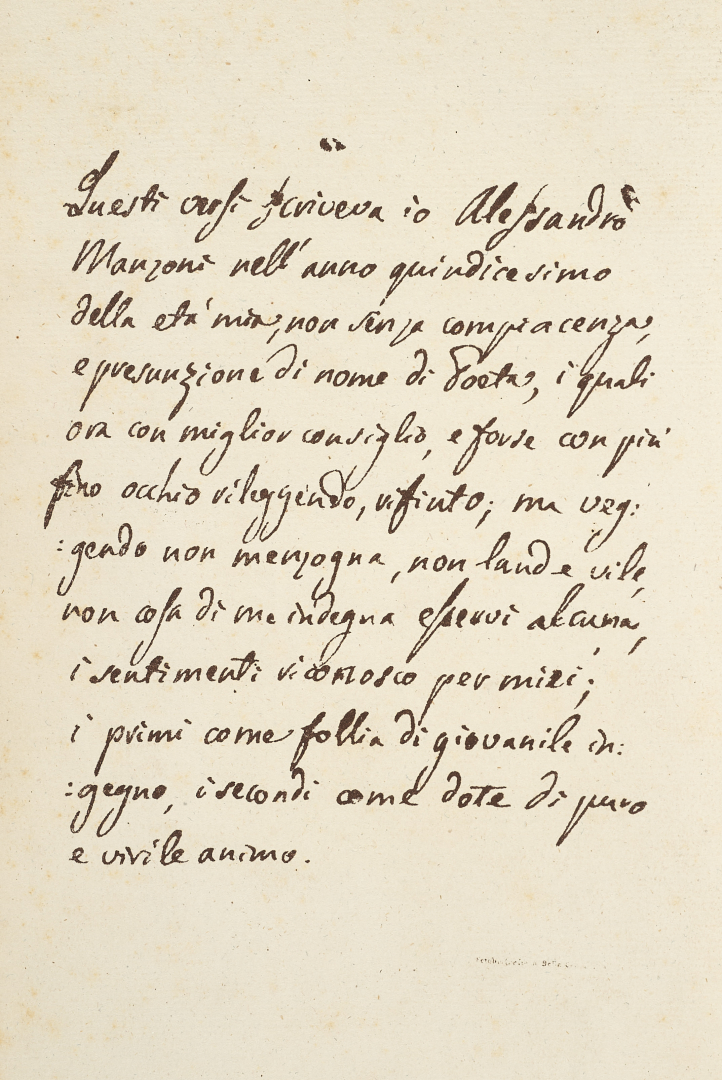 Questi versi scriveva io Alessandro
Manzoni nell'anno quindicesimo
della età mia, non senza compiacenza,
e presunzione di nome di Poeta, i quali
ora con miglior consiglio, e forse con più
fino occhio rileggendo, rifiuto; ma veg:
:gendo non menzogna, non laude vile,
non cosa di me indegna esservi alcuna,
i sentimenti riconosco per miei;
i primi come follia di giovanile in:
:gegno, i secondi come dote di puro
e virile animo.